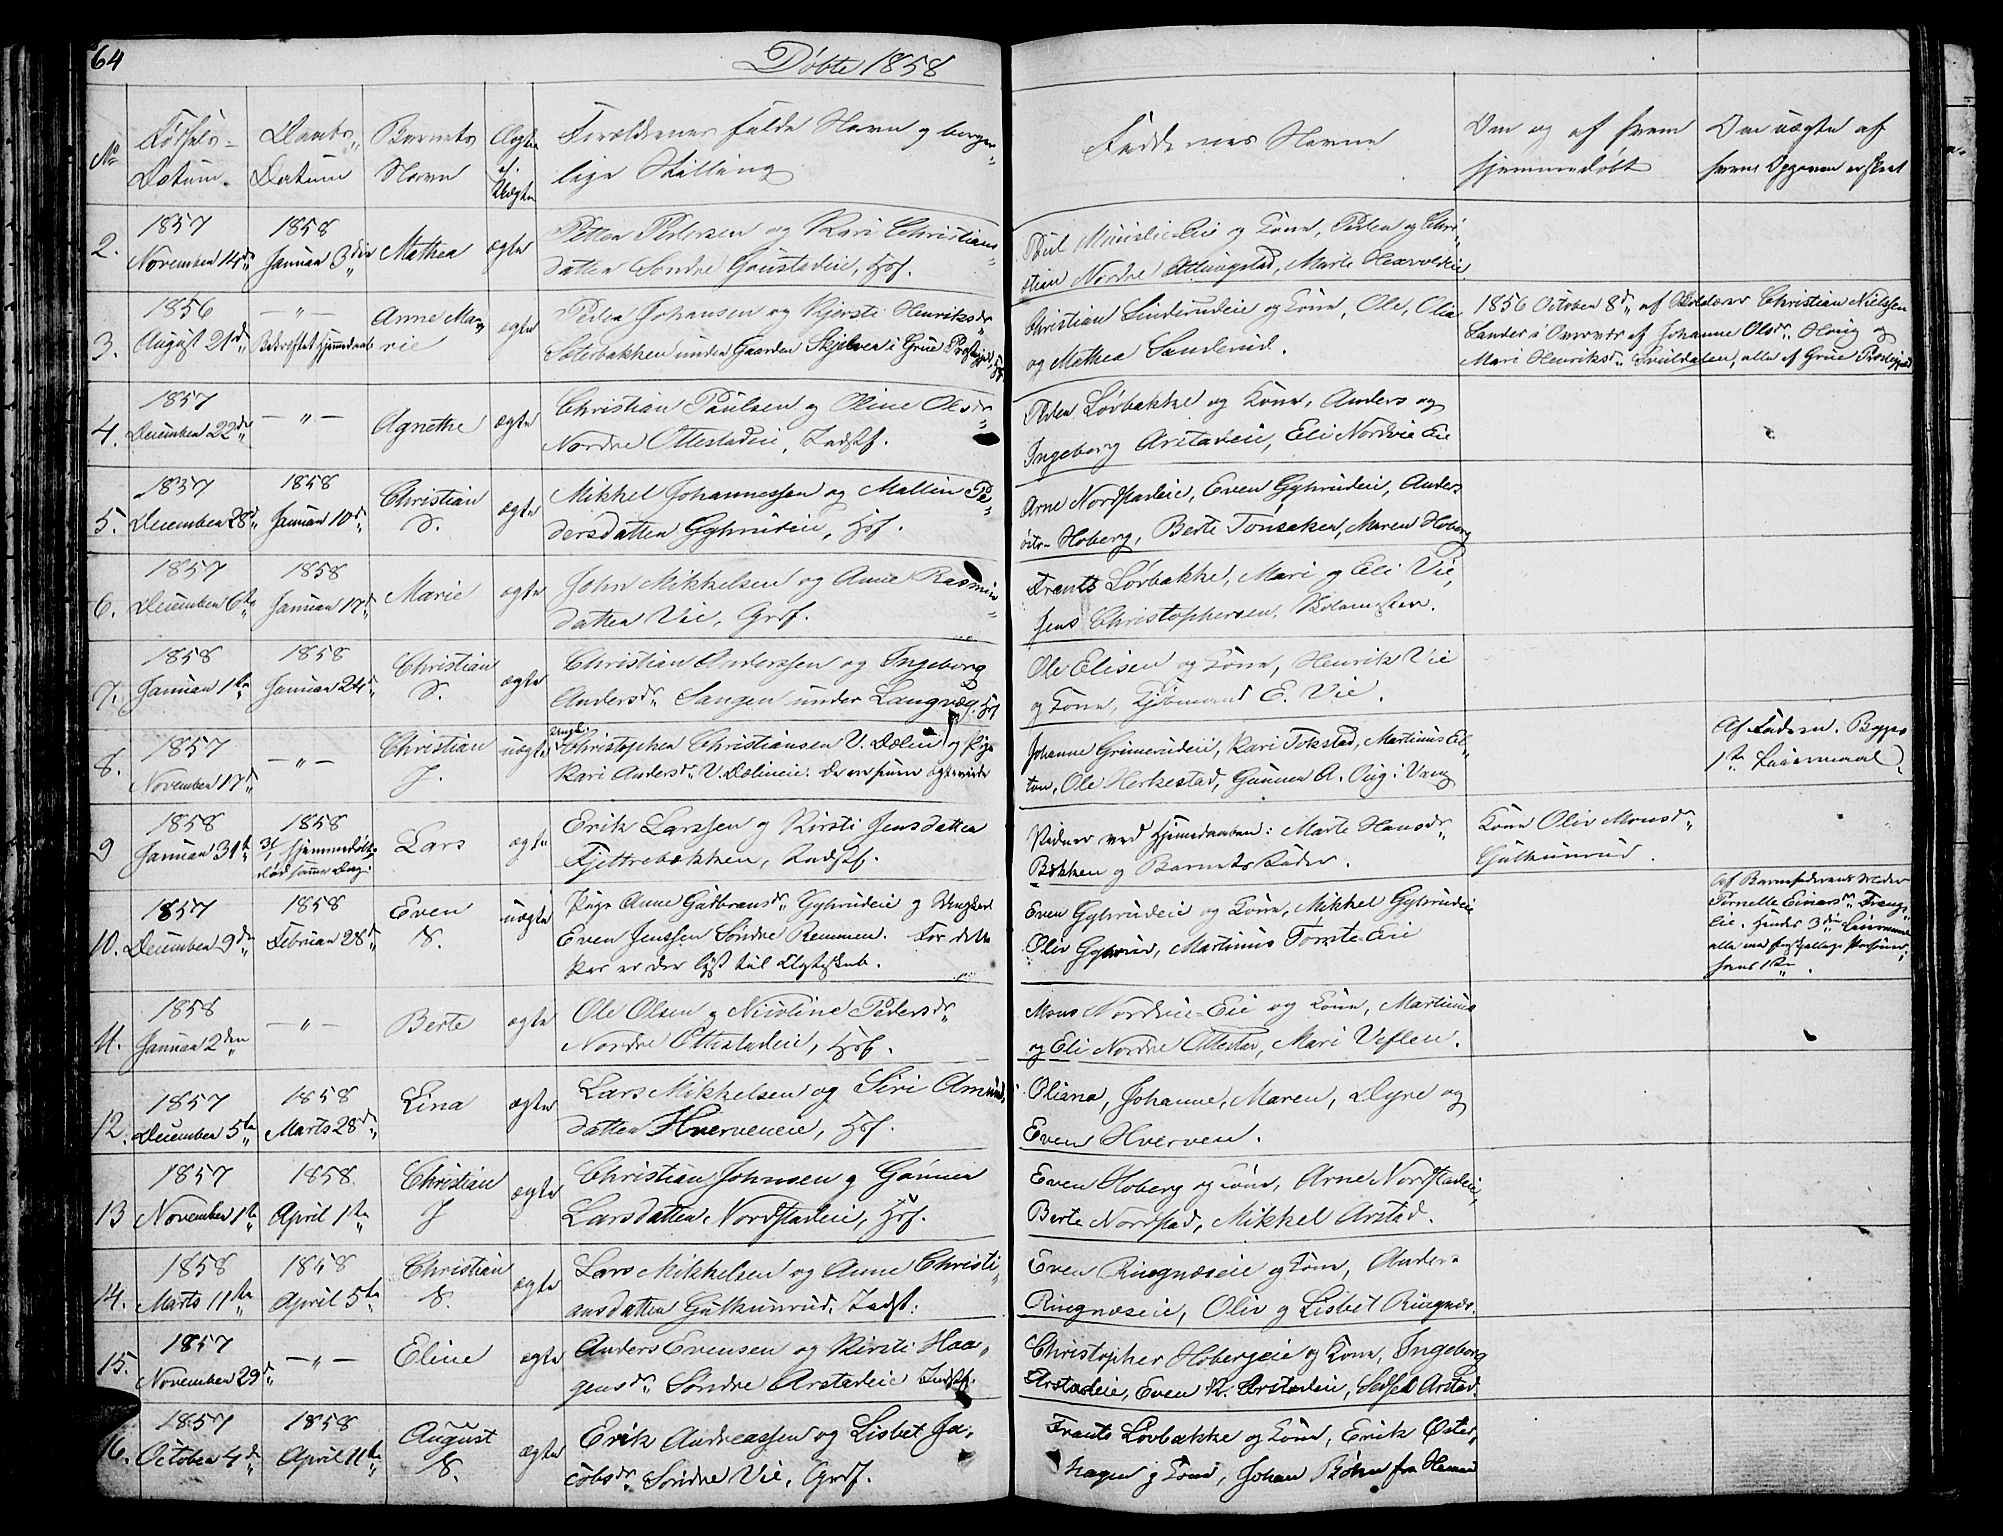 64
Døbte 1858
No
Fødsels-
Datum
Daabs
Datum
Barnets
Navn
Ægte
el.
Uægte
Forældrenes fulde Navn og borger-
lige Stilling
Faddernes Navne
Om og af hvem
hjemmedøbt
Om uægte af
hvem Opgaven er skeet
2. 1857 November 14de 1858 Januar 3die Mathea ægte
Petter Pedersen og Kari Christians
datter Søndre Goustadeie, Hsf.
og Kone, Peder og Chri-
stian Nordre Marte
3. 1856 August 21de — " — Bekræftet Hjemmedaab Anne Ma-
rie ægte
Peder Johansen og Kjersti Henriksdr
Sæterbakken under Gaarden Skjelver i Grue Præstegjeld, Hsf
Christian Linderudeie og Kone, Ole, Olia
og Mathea Sanderud.
1856 October 8de af Skolelærer Christian Nielssen
Sander i Overvær af Johanne Olsdr. Hsmg og
Mari Henriksdr. alle af Grue Præstegjeld
4. 1857 December 22de — " — Agnethe ægte
Christian Paulsen og Oline Olsdr
Nordre Ottestadeie, Indstf.
Peder Løvbakke og Kone, Anders og
Ingeborg Arstadeie, Eli Nordvie Eie
5. 1857 December 28de 1858 Januar 10de Christian
S. ægte
Mikkel Johannessen og Mallin Pe-
dersdatter Gyhrudeie, Hsf.
Arne Nordstadeie, Even Gyhrudeie, Anders
Hoberg, Berte Tonsaker, Maren Hoberg
6. 1857 December 6te 1858 Januar 17de Marie ægte
John Mikkelsen og Anne Rasmus-
datter Vie, Grdf.
Frants Løvbakke, Mari og Eli Vie,
Jens Christophersen,
7. 1858 Januar 1ste 1858 Januar 24de Christian
S. ægte
Christian Anderssen og Ingeborg
Andersdr. Sangen under Hsf
Ole Elisen og Kone, Henrik Vie
og Kone, Kjøbmand E. Vie.
8. 1857 November 17de — " — Christian
J. uægte
Ungk. Christopher Christiansen V. Dælin og Pige
Kari Andersdr. V. Dælineie.
Johanne Grimerudeie, Kari Tokstad, Martinus
Ole Herkestad, Gunner A.
Af Faderen. Begges
1ste Leiermaal
9 1858 Januar 31te 1858 31/1 Hjemmedøbt,
død samme Dag. Lars ægte
Erik Larssen og Kirsti Jensdatter
Fjettrebækken, Indstf.
Vidner ved Hjemmedaaben: Marte Hansdr.
Bækken og Barnets Fader.
Kone Oliv Monsdr.
Gulkunrud.
10. 1857 December 9de 1858 Februar 28de Even
S. uægte
Pige Anne Gudbransdr. Gyhrudeie og Ungkarl
Even Jenssen Søndre Remmen. For dette
Par er der lyst til Ægteskab.
Even Gyhrudeie og Kone, Mikkel Gyhrudeie
Oliv Gyhrud, Martinus Eie
Af Barnefaderens Moder
Pernelle Einarsdr.
eie. Hendes 3die Leiermaal
hans 1ste.
11. 1858 Januar 2den — " — Berte ægte
Ole Olsen og Nicoline Pedersdr.
Nordre Ottestadeie, Hsf.
Mons Nordvie-Eie og Kone, Martinus
og Eli Nordre Ottestad, Mari Veflen.
12. 1857 December 5te 1858 Marts 28de Lina ægte
Lars Mikkelsen og Siri Amunds
datter Hverveneie, Hsf.
Oliana, Johanne, Maren, Dyre og
Even Hverven.
13 1857 November 1ste 1858 April 1ste Christian
J ægte
Christian Johnsen og Gunner
Larsdatter Nordstadeie, Hsf.
Even Hoberg og Kone, Arne Nordstadeie,
Berte Nordstad, Mikkel Arstad.
14. 1858 Marts 11te 1858 April 5te Christian
S. ægte
Lars Mikkelsen og Anne Christi-
ansdatter Gulkunrud, Indst.
Even Ringnæseie og Kone, Anders
Ringnæseie, Oliv og Lisbet Ringnæs.
15. 1857 November 29de — " — Eline ægte
Anders Evensen og Kirsti Haa-
gensdr. Søndre Arstadeie Indstf.
Christopher Hobergeie og Kone, Ingeborg
Arstadeie, Even K. Arstadeie, Sidsel Arstad
16. 1857 October 4de 1858 April 11te August
S. ægte
Erik Andreassen og Lisbet Ja-
cobsdr. Søndre Vie, Grdf.
Frants Løvbakke og Kone, Erik Øster-
hagen og Kone, Johan Bøhn fra Hamar